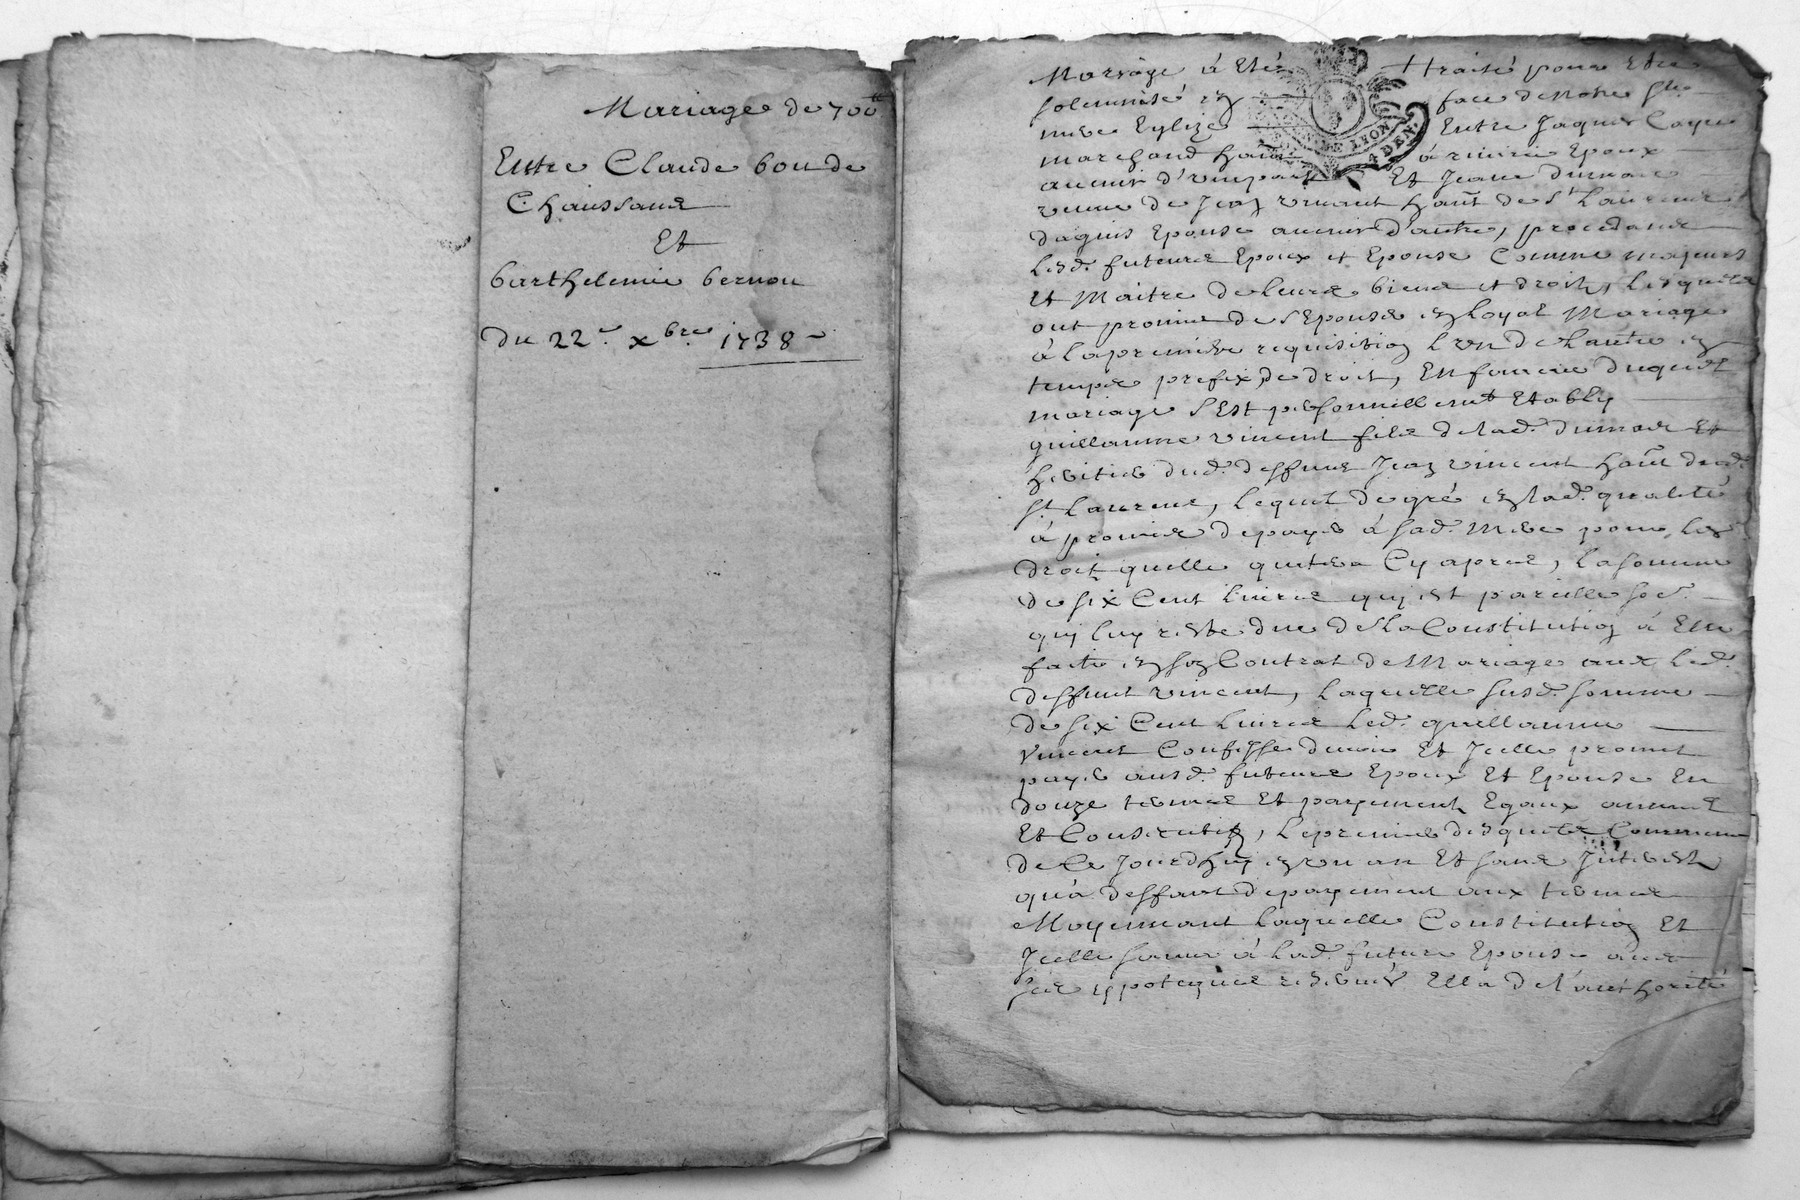 Mariage de 700ˡᵗ
Entre Claude bon de
Chaussans
Et
barthelemie bernou
du 22ᵉ xᵇʳᵉ 1738
Mariage à Eté traité pour Etre
solemnisé en face de notre Ste
mere Eglize Entre Jaques Cayre
marchand hañt à riverie Epoux
avenir d'une part Et Jeane dumas
veuve de Jean vincent hañt de St Laurent
dagnis Epouse avenir d'autre, procedants
lesd. futeurs Epoux et Epouse Comme majeurs
et Maitre de leurs biens et droits, lesquels
ont promis de s'Epouser en loyal Mariage
à la premiere requisition l'un de lautre en
temps prefix de droit, En faveur duquel
mariage s'Est personnellemt Etably
guillaume vincent fils de lad. dumas Et
heritier dud. deffunt Jean vincent hañt dud.
St Laurent, lequel de gré en lad. qualité
à promis de payer à sad. Mere pour les
droits quelle quitera Cy apres, la somme
de six Cent livres qui est pareille soe.
qui luy reste due de la Constitution à Elle
faite en son Contrat de Mariage avec led.
deffunt vincent, laquelle susd. somme
de six Cent livres led. guillaume
vincent Confesse devoir Et Jcelle promet
payer ausd. futeurs Epoux Et Epouse En
douze termes Et payements Egaux annuels
Et Consecutifs, le premier desquels Commence
de Ce Jourdhuy en un an Et sans Jnterests
qu'à deffaut de payement aux termes
Moyennant laquelle Constitution Et
Jcelle sauve à lad. future Epouse avec
ses ypoteques reservés Ell a de l'authorité